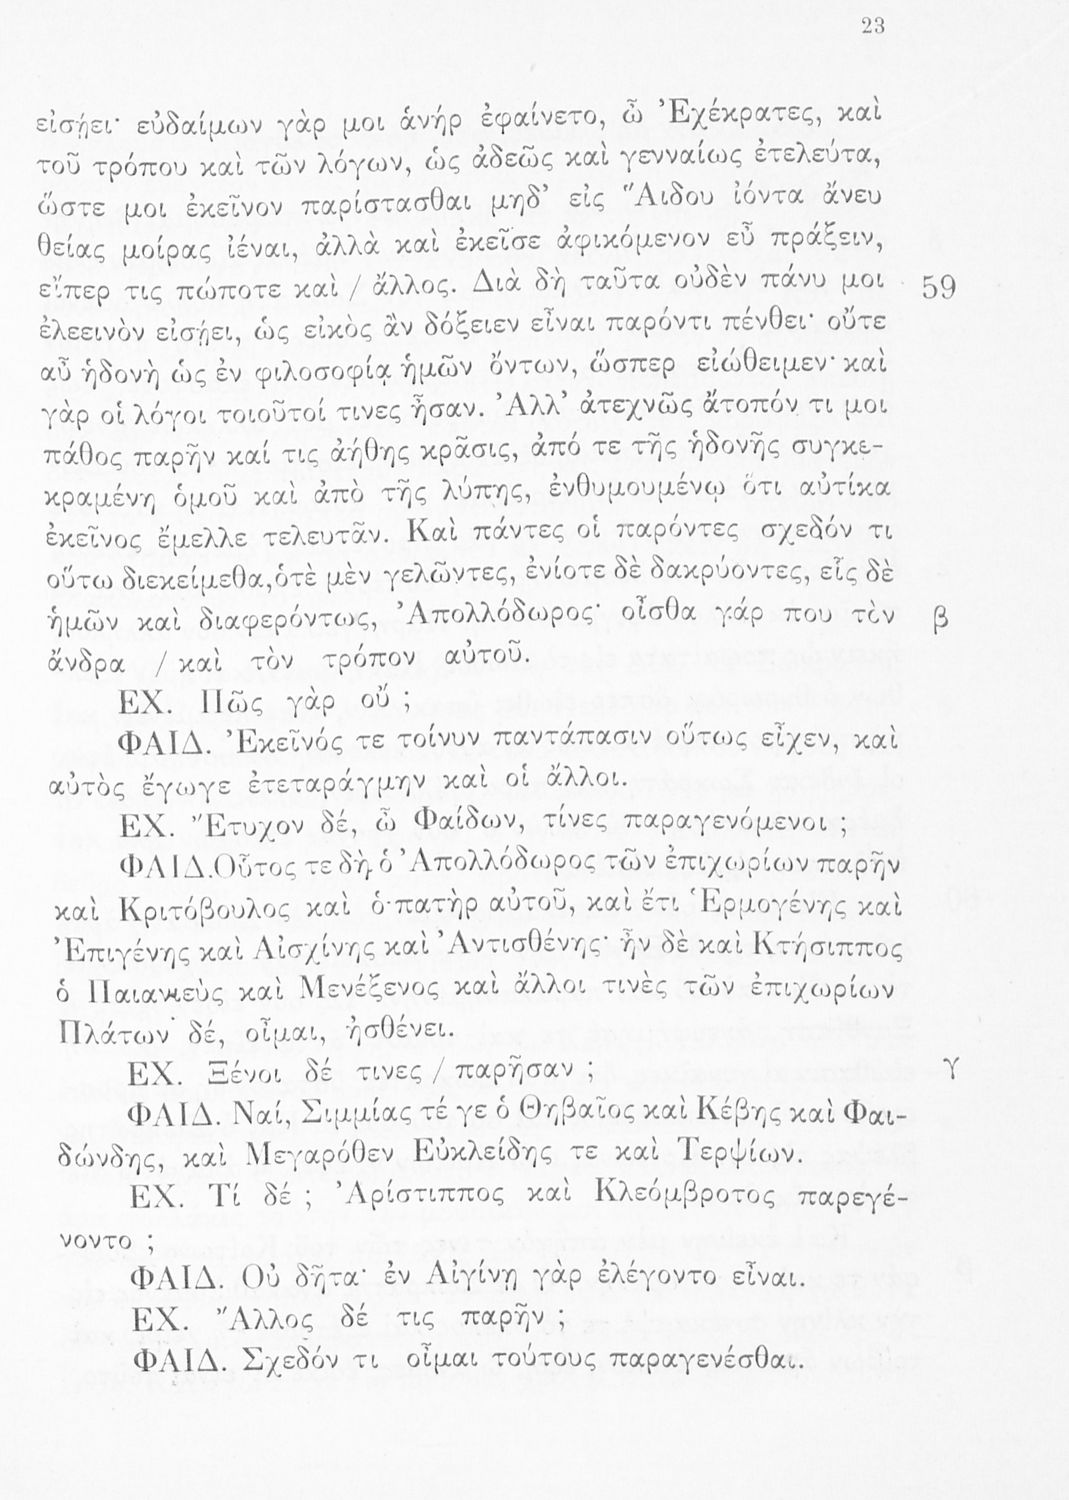 23
εἰσῄει· εὐδαίμων γὰρ μοι ἁνήρ ἐφαίνετο, ὦ Ἐχέκρατες, καὶ
τοῦ τρόπου καὶ τῶν λόγων, ὡς ἀδεῶς καὶ γενναίως ἐτελεύτα,
ὥστε μοι ἐκεῖνον παρίστασθαι μηδ’ εἰς Ἅιδου ἰόντα ἄνευ
θείας μοίρας ἰέναι, ἀλλὰ καὶ ἐκεῖσε ἀφικόμενον εὖ πράξειν,
εἴπερ τις πώποτε καὶ / ἄλλος. Διὰ δὴ ταῦτα οὐδὲν πάνυ μοι 59
ἐλεεινὸν εἰσῄει, ὡς εἰκὸς ἂν δόξειεν εἶναι παρόντι πένθει· οὔτε
αὖ ἡδονὴ ὡς ἐν φιλοσοφίᾳ ἡμῶν ὄντων, ὥσπερ εἰώθειμεν· καὶ
γὰρ οἱ λόγοι τοιοῦτοί τινες ἦσαν. Ἀλλ’ ἀτεχνῶς ἄτοπόν τι μοι
πάθος παρῆν καί τις ἀήθης κρᾶσις, ἀπό τε τῆς ἡδονῆς συγκε-
κραμένη ὁμοῦ καὶ ἀπὸ τῆς λύπης, ἐνθυμουμένῳ ὅτι αὐτίκα
ἐκεῖνος ἔμελλε τελευτᾶν. Καὶ πάντες οἱ παρόντες σχεδόν τι
οὕτω διεκείμεθα, ὁτὲ μὲν γελῶντες, ἐνίοτε δὲ δακρύοντες, εἷς δὲ
ἡμῶν καὶ διαφερόντως, Ἀπολλόδωρος· οἶσθα γάρ που τὸν β
ἄνδρα / καὶ τὸν τρόπον αὐτοῦ.
ΕΧ. Πῶς γὰρ οὔ ;
ΦΑΙΔ. Ἐκεῖνός τε τοίνυν παντάπασιν οὕτως εἶχεν, καὶ
αὐτὸς ἔγωγε ἐτεταράγμην καὶ οἱ ἄλλοι.
ΕΧ. Ἔτυχον δέ, ὦ Φαίδων, τίνες παραγενόμενοι ;
ΦΑΙΔ. Οὗτος τε δὴ ὁ Ἀπολλόδωρος τῶν ἐπιχωρίων παρῆν
καὶ Κριτόβουλος καὶ ὁ πατὴρ αὐτοῦ, καὶ ἔτι Ἑρμογένης καὶ
Ἐπιγένης καὶ Αἰσχίνης καὶ Ἀντισθένης· ἦν δὲ καὶ Κτήσιππος
ὁ Παιανιεὺς καὶ Μενέξενος καὶ ἄλλοι τινὲς τῶν ἐπιχωρίων
Πλάτων δέ, οἶμαι, ἠσθένει.
ΕΧ. Ξένοι δέ τινες / παρῆσαν ; γ
ΦΑΙΔ. Ναί, Σιμμίας τέ γε ὁ Θηβαῖος καὶ Κέβης καὶ Φαι-
δώνδης, καὶ Μεγαρόθεν Εὐκλείδης τε καὶ Τερψίων.
ΕΧ. Τί δέ ; Ἀρίστιππος καὶ Κλεόμβροτος παρεγέ-
νοντο ;
ΦΑΙΔ. Οὐ δῆτα· ἐν Αἰγίνῃ γὰρ ἐλέγοντο εἶναι.
ΕΧ. Ἄλλος δέ τις παρῆν ;
ΦΑΙΔ. Σχεδόν τι οἶμαι τούτους παραγενέσθαι.